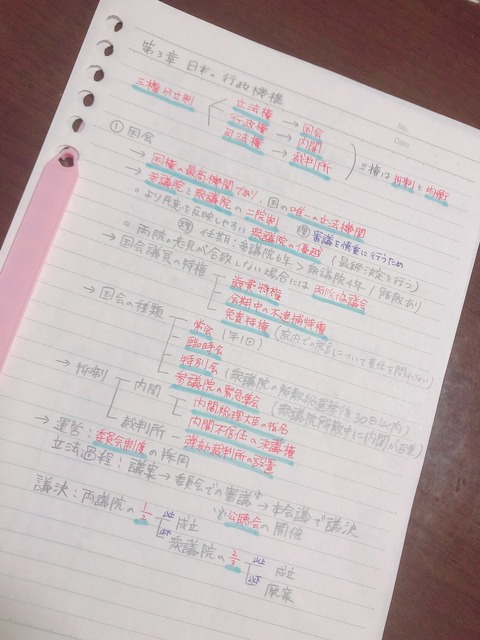 No.
Date
第3章 日本の行政機構
三権分立制
立法権 → 国会
行政権 → 内閣
司法権 → 裁判所
三権は抑制と均衡
① 国会
→ 国権の最高機関であり、国の唯一の立法機関
→ 参議院と衆議院の二院制 理 審議を慎重に行うため
◦ より民意を反映しやすい衆議院の優越 (最終決定を行う)
理 任期：参議院6年 > 衆議院4年 / 解散あり
◦ 両院の意見が合致しない場合には両院協議会
→ 国会議員の特権
歳費特権
会期中の不逮捕特権
免責特権 (院内での発言について責任を問われない)
→ 国会の種類
常会 (年1回)
臨時会
特別会 (衆議院の解散総選挙後30日以内)
参議院の緊急集会 (衆議院解散中に内閣が召集)
→ 抑制
内閣
内閣総理大臣の指名
内閣不信任の決議権
裁判所 ─ 弾劾裁判所の設置
→ 運営：委員会制度の採用
立法過程：議案 → 委員会での審議 → 本会議で議決
公聴会の開催
議決：両議院の1/2
成立
衆議院の2/3
成立
廃案